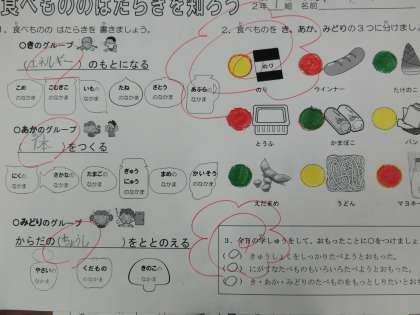 食べもののはたらきを知ろう
２年 １組 名前
１、食べもの のはたらきを 書きましょう。
○きのグループ
(エネルギー)のもとになる
こめ のなかま
こむぎこ のなかま
いも のなかま
たね のなかま
さとう のなかま
あぶら のなかま
○あかのグループ
(体)をつくる
にく のなかま
さかな のなかま
たまご のなかま
ぎゅうにゅう のなかま
まめ のなかま
かいそう のなかま
○みどりのグループ
からだの(ちょうし)をととのえる
やさい のなかま
くだもの のなかま
きのこ のなかま
２、食べものを き、あか、みどりの３つに分けましょ
のり
のり
ウインナー
たけのこ
とうふ
かまぼこ
パン
えだまめ
うどん
マヨネー
３、今日の学しゅうをして、おもったことに○をつけましょ
(○) きゅうしょくをしっかりたべようとおもった。
(○) にがてなたべものもいろいろたべようとおもった。
(○) き・あか・みどりのたべものをもっとしりたいとおも